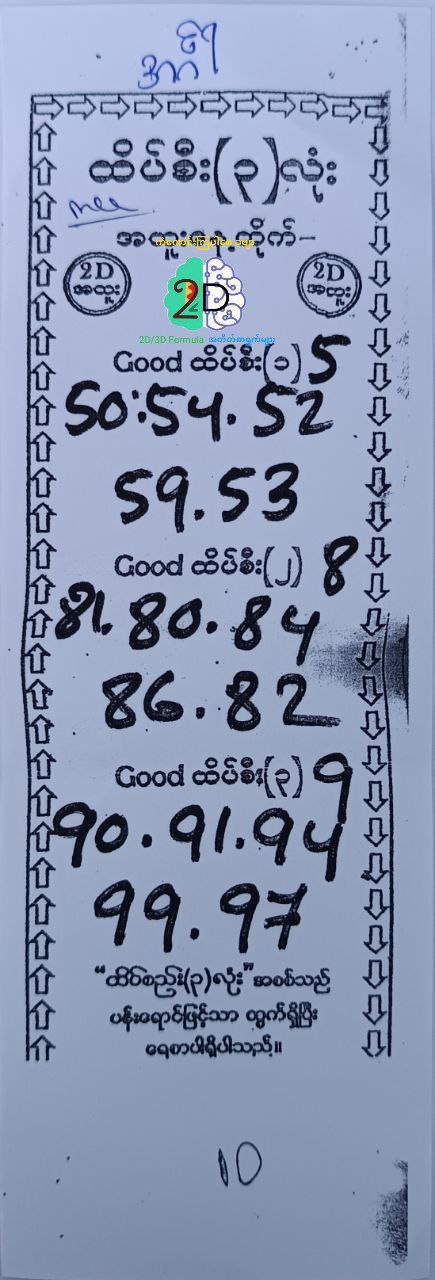 ထိပ်စီး(၃)လုံး
2D
အထူး
2D
အထူး
2D
2D/3D Formula အတိတ်စာရွက်များ
Good ထိပ်စီး(၁) 5
50.54.52
59.53
Good ထိပ်စီး(၂) 8
81.80.84
86.82
Good ထိပ်စီး(၃) 9
90.91.94
99.97
"ထိပ်စည်း(၃)လုံး" အစစ်သည်
ပန်းရောင်ဖြင့်သာ ထွက်ရှိပြီး
ရေစာပါရှိပါသည်။
10